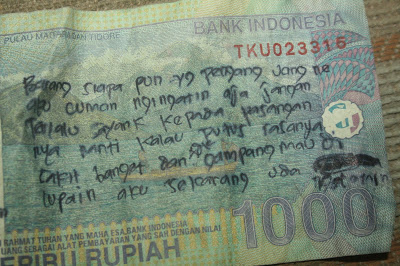 PULAU MAITARA DAN TIDORE
BANK INDONESIA
TKU023316
Barang siapa pun yg pegang uang ne
aku cuman ngingatin aja jangan
terlalu sayank kepada pasangan
nya nanti kalau putus rasanya
sakit banget dan gampang mau di
lupain aku sekarang uda
1000
RAHMAT TUHAN YANG MAHA ESA, BANK INDONESIA
UARKAN SEBAGAI ALAT PEMBAYARAN YANG SAH DENGAN NILAI
SERIBU RUPIAH